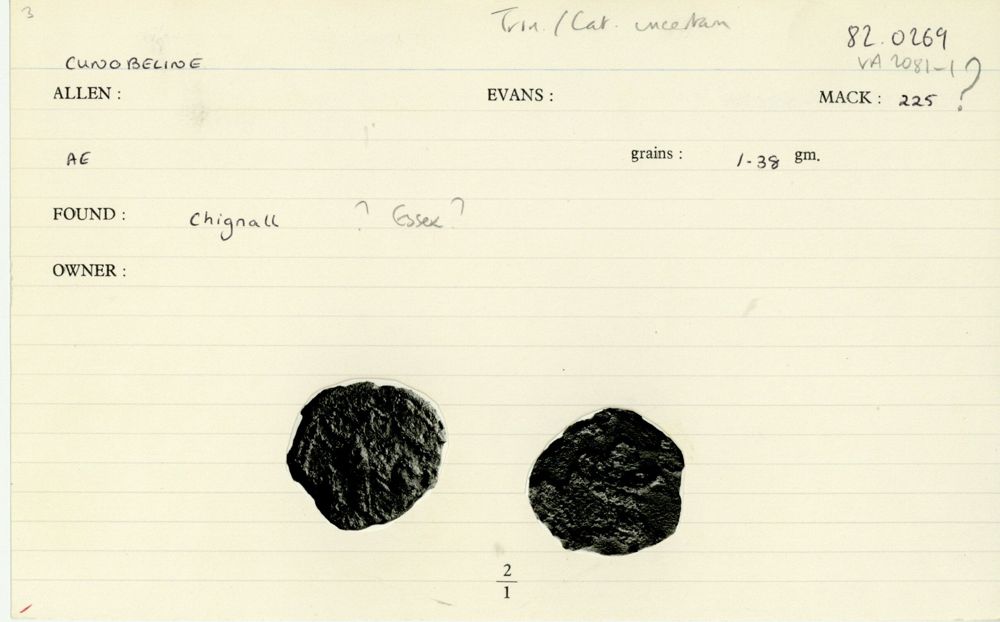 3
Trin. / Cat. uncertain
82.0269
CUNOBELINE
VA 2081-1 ?
ALLEN : EVANS : MACK : 225
AE grains : 1.38 gm.
FOUND : Chignall ? Essex ?
OWNER :
2
1